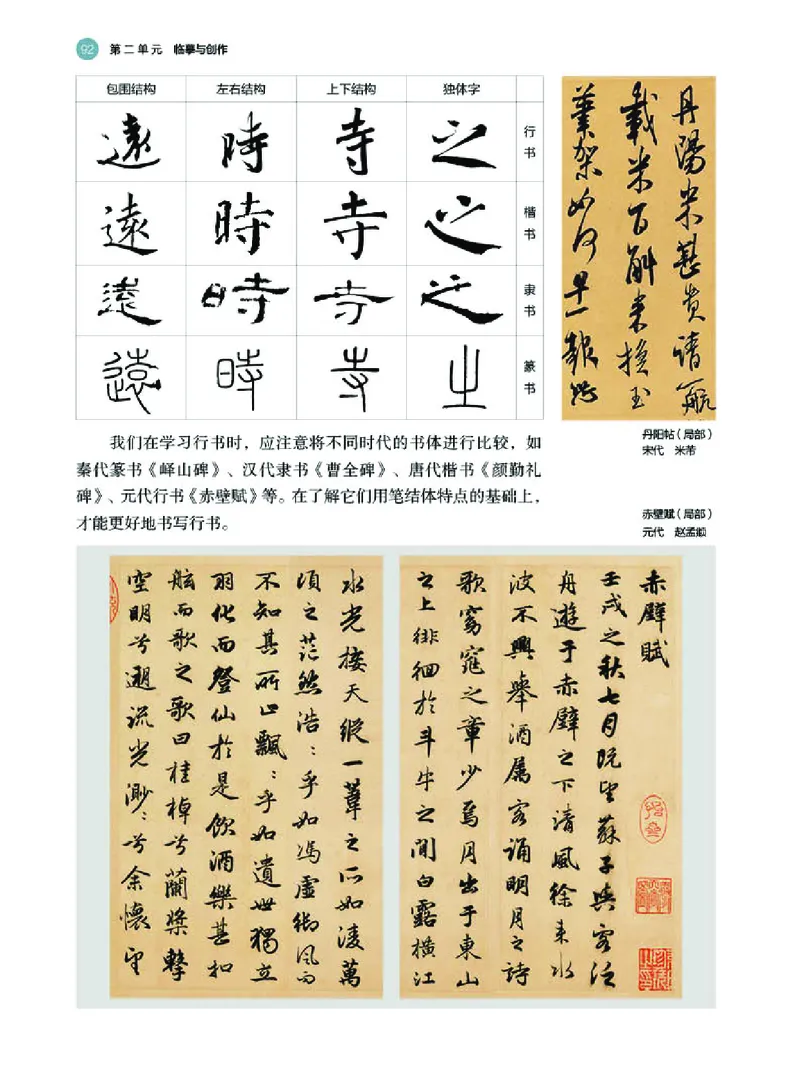 92 第二单元 临摹与创作
包围结构 左右结构 上下结构 独体字
遠 時 寺 之 行书
遠 時 寺 之 楷书
遠 時 寺 之 隶书
遠 時 寺 之 篆书
丹陽米甚貴請一航
載米百斛來換玉
筆架如何早一報
丹阳帖（局部）
宋代 米芾
我们在学习行书时，应注意将不同时代的书体进行比较，如
秦代篆书《峄山碑》、汉代隶书《曹全碑》、唐代楷书《颜勤礼
碑》、元代行书《赤壁赋》等。在了解它们用笔结体特点的基础上，
才能更好地书写行书。
赤壁赋（局部）
元代 赵孟頫
赤壁賦
壬戌之秋七月既望蘇子與客泛
舟遊于赤壁之下清風徐来水
波不興舉酒属客誦明月之詩
歌窈窕之章少焉月出于東山
之上徘徊於斗牛之間白露橫江
水光接天縱一葦之所如淩萬
頃之茫然浩：乎如馮虚御風而
不知其所止飄：乎如遺世獨立
羽化而登仙於是飲酒樂甚扣
舷而歌之歌曰桂棹兮蘭槳擊
空明兮遡流光渺：兮余懷望